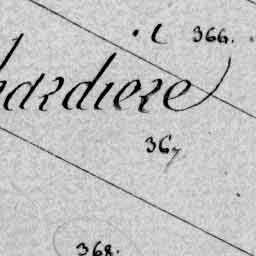 366.
hardiere
367
368.